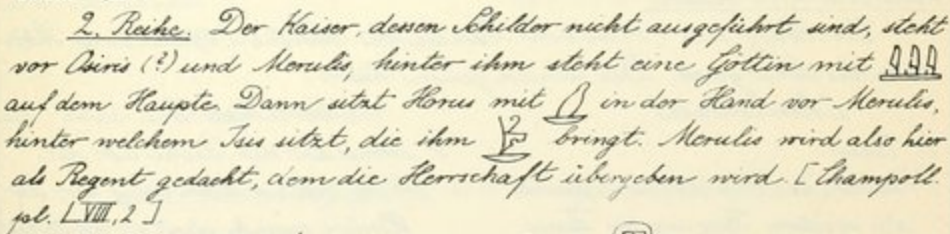 2. Reihe. Der Kaiser, dessen Schilder nicht ausgeführt sind, steht
vor Osiris (?) und Merulis, hinter ihm steht eine Göttin mit
auf dem Haupte. Dann sitzt Horus mit in der Hand vor Merulis,
hinter welchem Isis sitzt, die ihm bringt. Merulis wird also hier
als Regent gedacht, dem die Herrschaft übergeben wird. [Champoll.
pl. LVIII, 2]